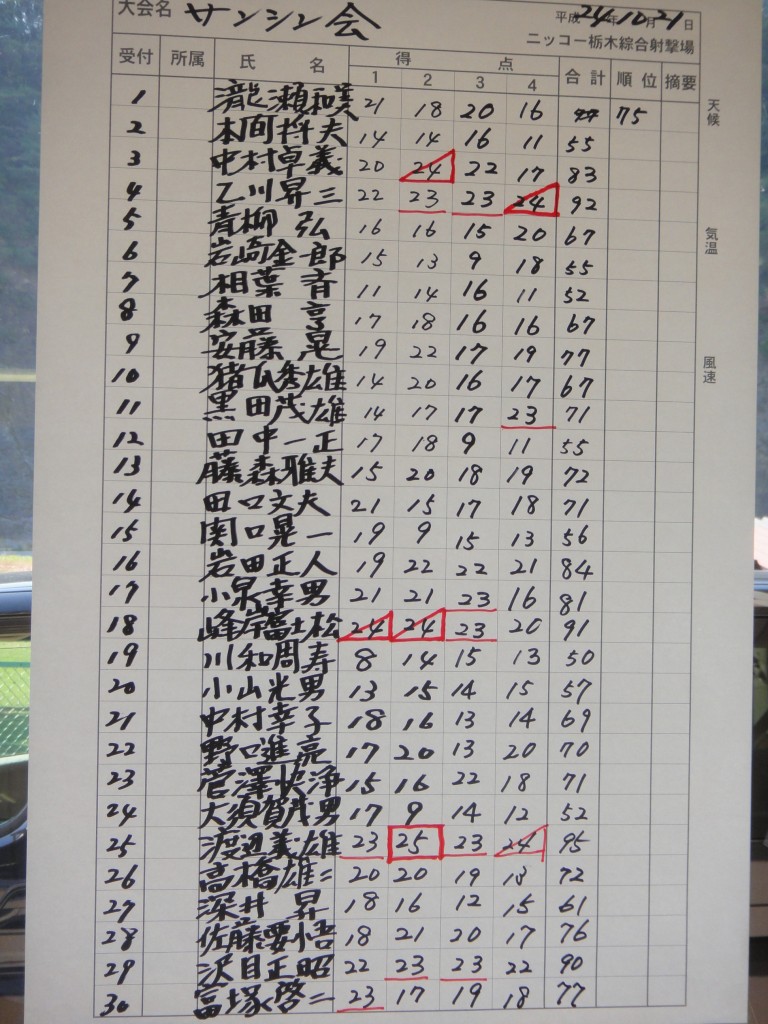 大会名 サンシン会 平成24年10月21日
ニッコー栃木綜合射撃場
受付 所属 氏 名 得 点 合計 順位 摘要
1 2 3 4
天候
気温
風速
1 瀧瀬和美 21 18 20 16 75
2 本間将夫 14 14 16 11 55
3 中村卓義 20 24 22 17 83
4 乙川昇三 22 23 23 24 92
5 青柳 弘 16 16 15 20 67
6 岩崎金一郎 15 13 9 18 55
7 相葉 斉 11 14 16 11 52
8 森田 亨 17 18 16 16 67
9 安藤 晃 19 22 17 19 77
10 猪瓜彦雄 14 20 16 17 67
11 黒田茂雄 14 17 17 23 71
12 田中一正 17 18 9 11 55
13 藤森雅夫 15 20 18 19 72
14 田口文夫 21 15 17 18 71
15 関口晃一 19 9 15 13 56
16 岩田正人 19 22 22 21 84
17 小泉幸男 21 21 23 16 81
18 峰岸富士松 24 24 23 20 91
19 川和周寿 8 14 15 13 50
20 小山光男 13 15 14 15 57
21 中村幸子 18 16 13 14 69
22 野口進亮 17 20 13 20 70
23 菅澤快浄 15 16 22 18 71
24 大須賀茂男 17 9 14 12 52
25 渡辺義雄 23 25 23 24 95
26 高橋雄二 20 20 19 13 72
27 深井 昇 18 16 12 15 61
28 佐藤要悟 18 21 20 17 76
29 沢目正昭 22 23 23 22 90
30 富塚啓二 23 17 19 18 77